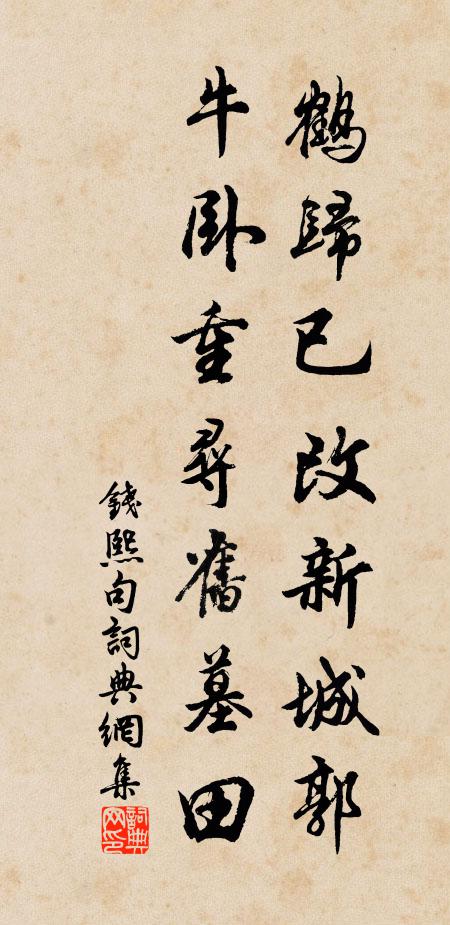 鶴歸已改新城郭
牛卧重尋舊墓田
錢熙句詞典網集
詞典網印